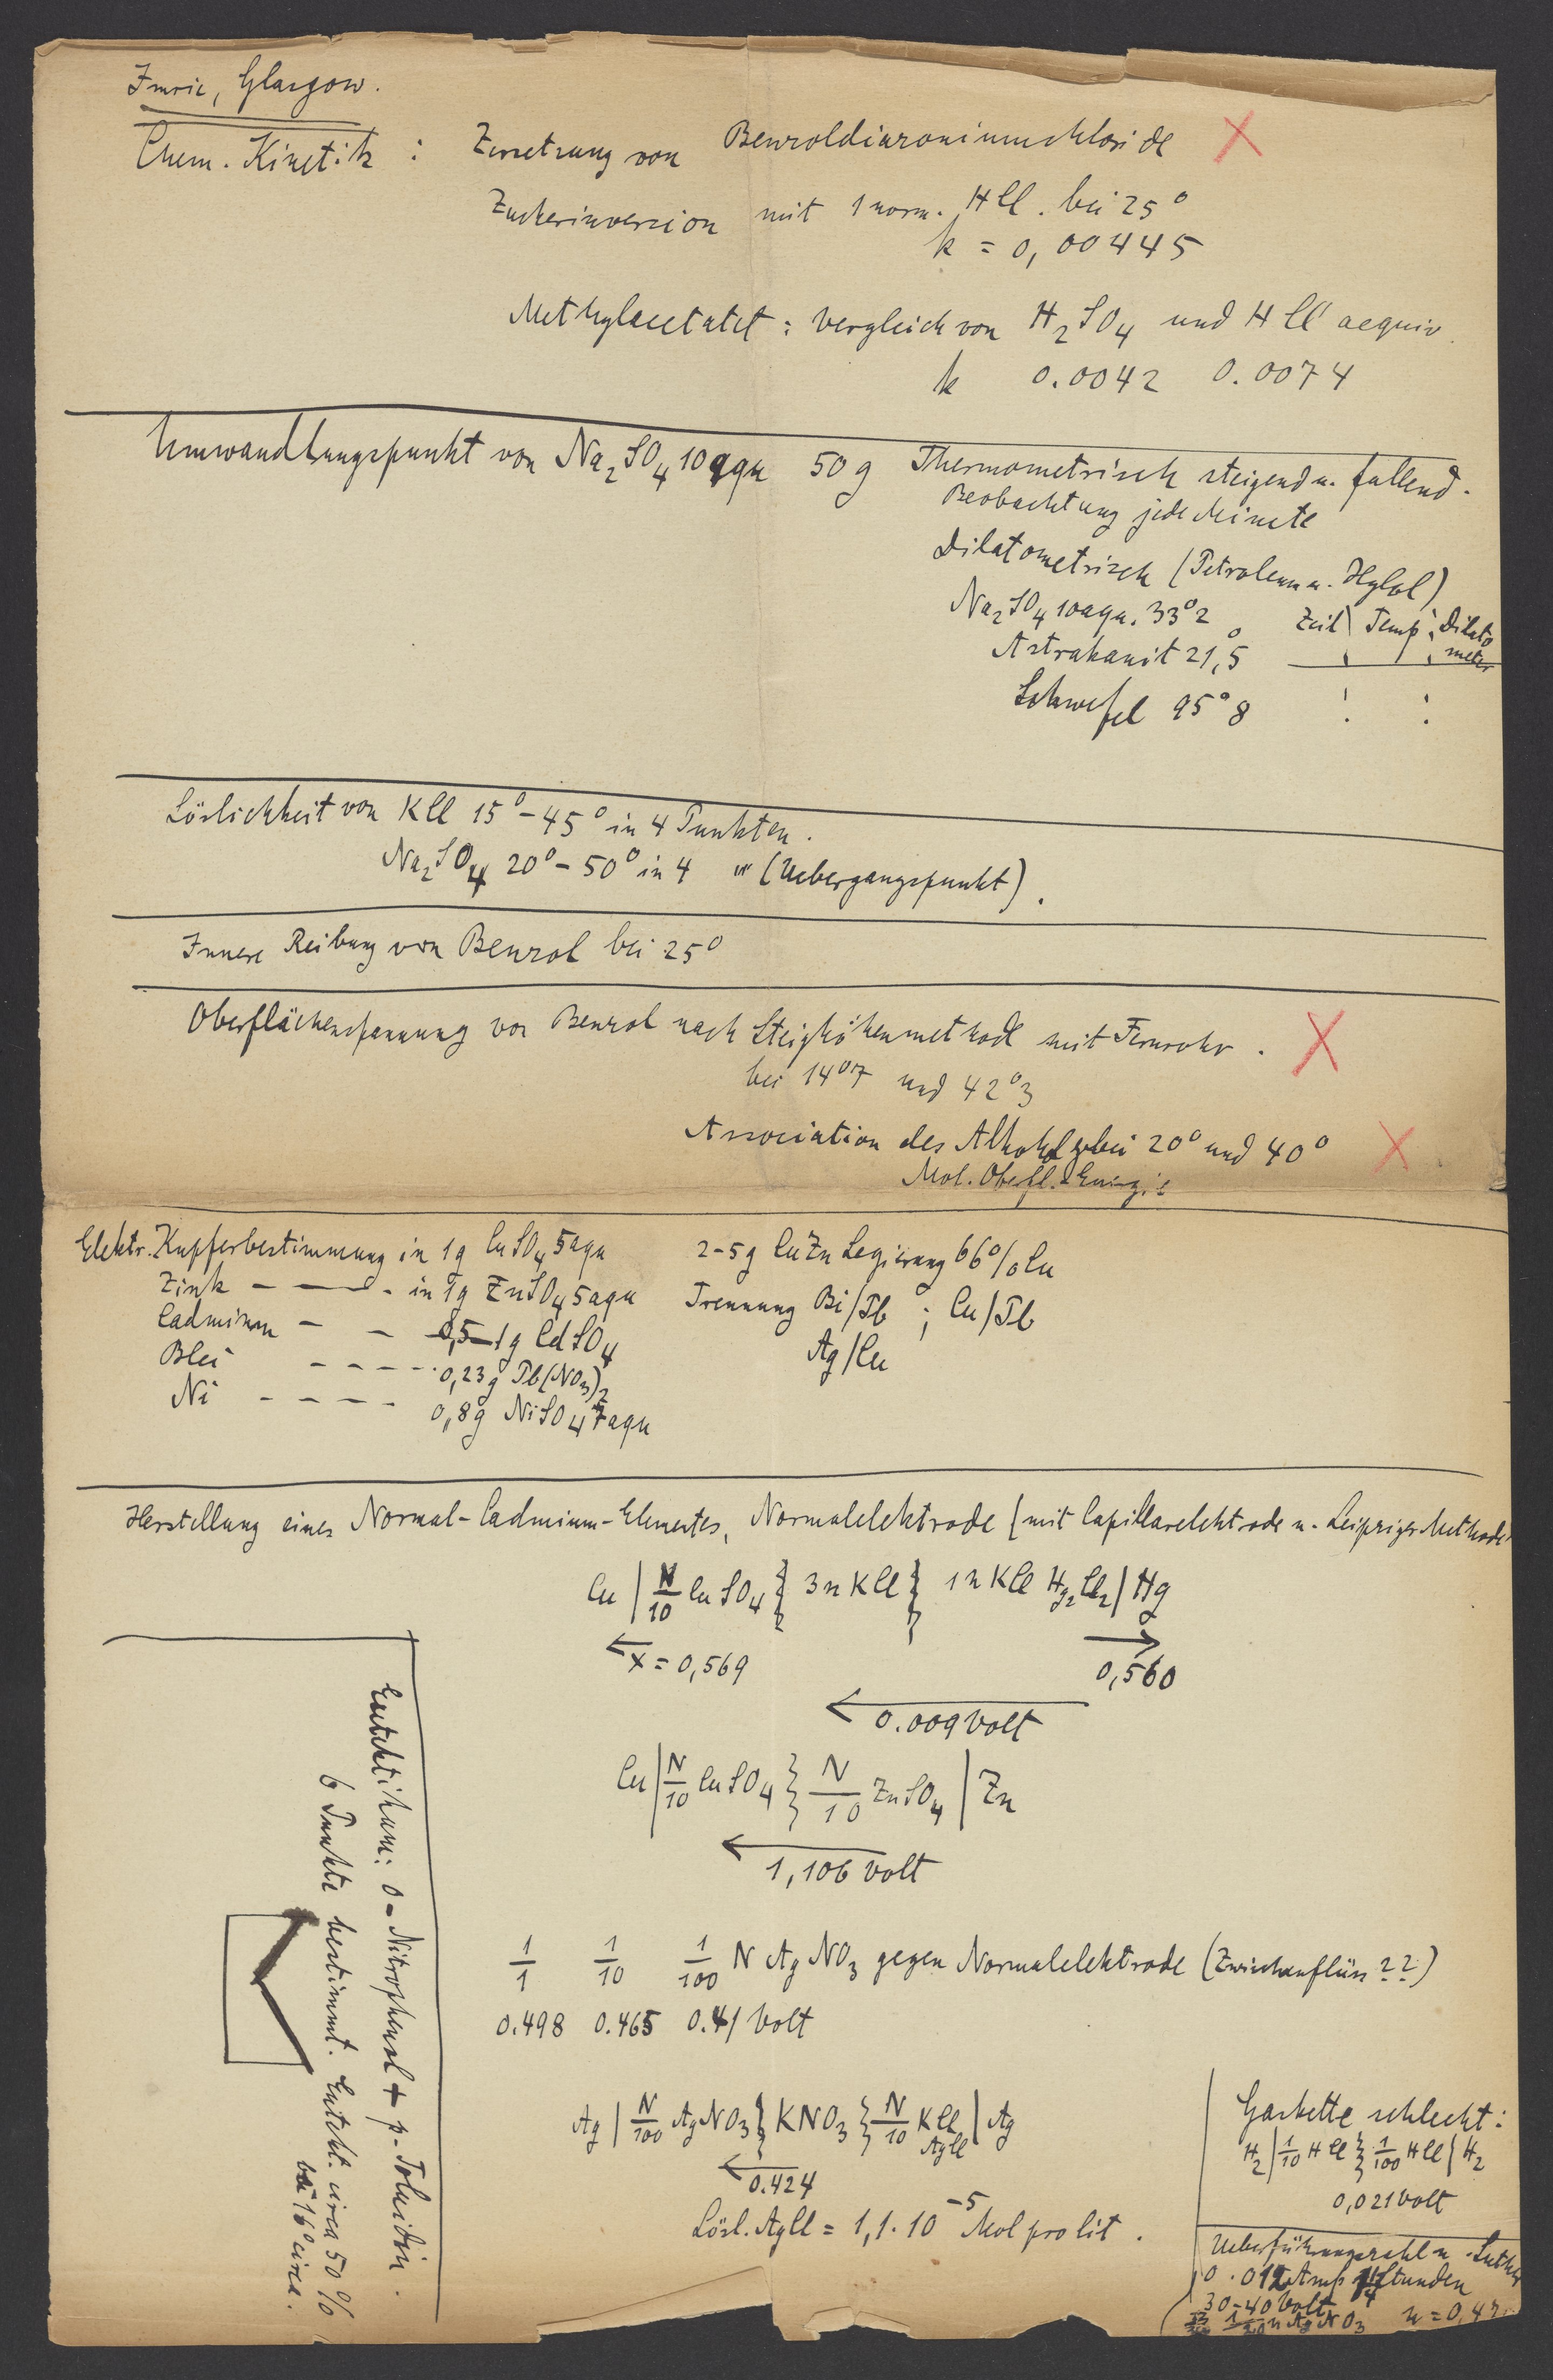 Imrie, Glasgow.
Chem. Kinetik : Zersetzung von Benzoldiazoniumchloride X
Zuckerinversion mit 1 norm. HCl. bei 25°
k = 0,00445
Methylacetatct : Vergleich von H2SO4 und HCl aequiv.
k 0.0042 0.0074
Umwandlungspunkt von Na2SO4 10aqu 50g Thermometrisch steigend u. fallend.
Beobachtung jede Minute
Dilatometrisch (Petroleum u. Xylol)
Na2SO4 10aqu. 33°2
Zeit Temp. Dilato
meter
Astrakanit 21,5°
Schwefel 95°8
Löslichkeit von KCl 15°-45° in 4 Punkten.
Na2SO4 20°-50° in 4 " (Uebergangspunkt).
Innere Reibung von Benzol bei 25°
Oberflächenspannung von Benzol nach Steighöhenmethode mit Fernrohr. X
bei 14°7 und 42°3
Association des Alkohols bei 20° und 40° X
Mol. Oberfl.-Energie
Elektr. Kupferbestimmung in 1g CuSO4 5aqu 2-5g CuZn Legierung 66% Cu
Zink - — - in 1g ZnSO4 5aqu Trennung Bi/Pb ; Cu/Pb
Cadmium - - 0,5-1g CdSO4 Ag/Cu
Blei - - - - 0,23g Pb(NO3)2
Ni - - - - 0,8g NiSO4 7aqu
Herstellung eines Normal-Cadmium-Elementes, Normalelektrode (mit Capillarelektrode u. Leipziger Methode
Cu | N/10 CuSO4 } 3n KCl } 1n KCl Hg2Cl2 | Hg
← x = 0,569 → 0,560
← 0.009 Volt
Cu | N/10 CuSO4 } N/10 ZnSO4 | Zn
← 1,106 Volt
1/1 1/10 1/100 N AgNO3 gegen Normalelektrode (Zwischenflüss ??)
0.498 0.465 0.41 Volt
Ag | N/100 AgNO3 } KNO3 } N/10 KCl | Ag
AgCl
← 0.424
Lösl. AgCl = 1,1·10-5 Mol pro lit.
Eutektikum: o-Nitrophenol + p-Toluidin.
6 Punkte bestimmt. Eutekt. circa 50%
bei 16° circa.
Gaskette schlecht:
H2 | 1/10 HCl } 1/100 HCl | H2
0,021 Volt
Ueberführungszahl n.
0.012 Amp Stunden
30-40 Volt
1/20 n AgNO3 n = 0,47